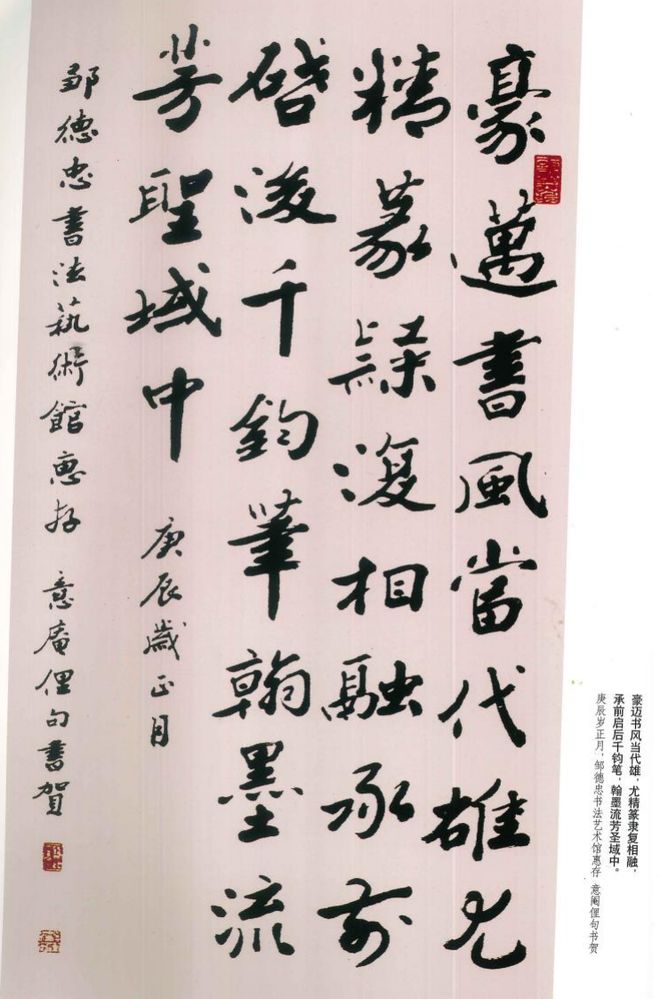 豪邁書風當代雄尤
精篆隸復相融承前
啓後千鈞筆翰墨流
芳聖域中 庚辰歲正月
鄒德忠書法藝術館惠存 意庵俚句書賀
豪迈书风当代雄，尤精篆隶复相融，
承前启后千钧笔，翰墨流芳圣域中。
庚辰岁正月，邹德忠书法艺术馆惠存 意阉俚句书贺